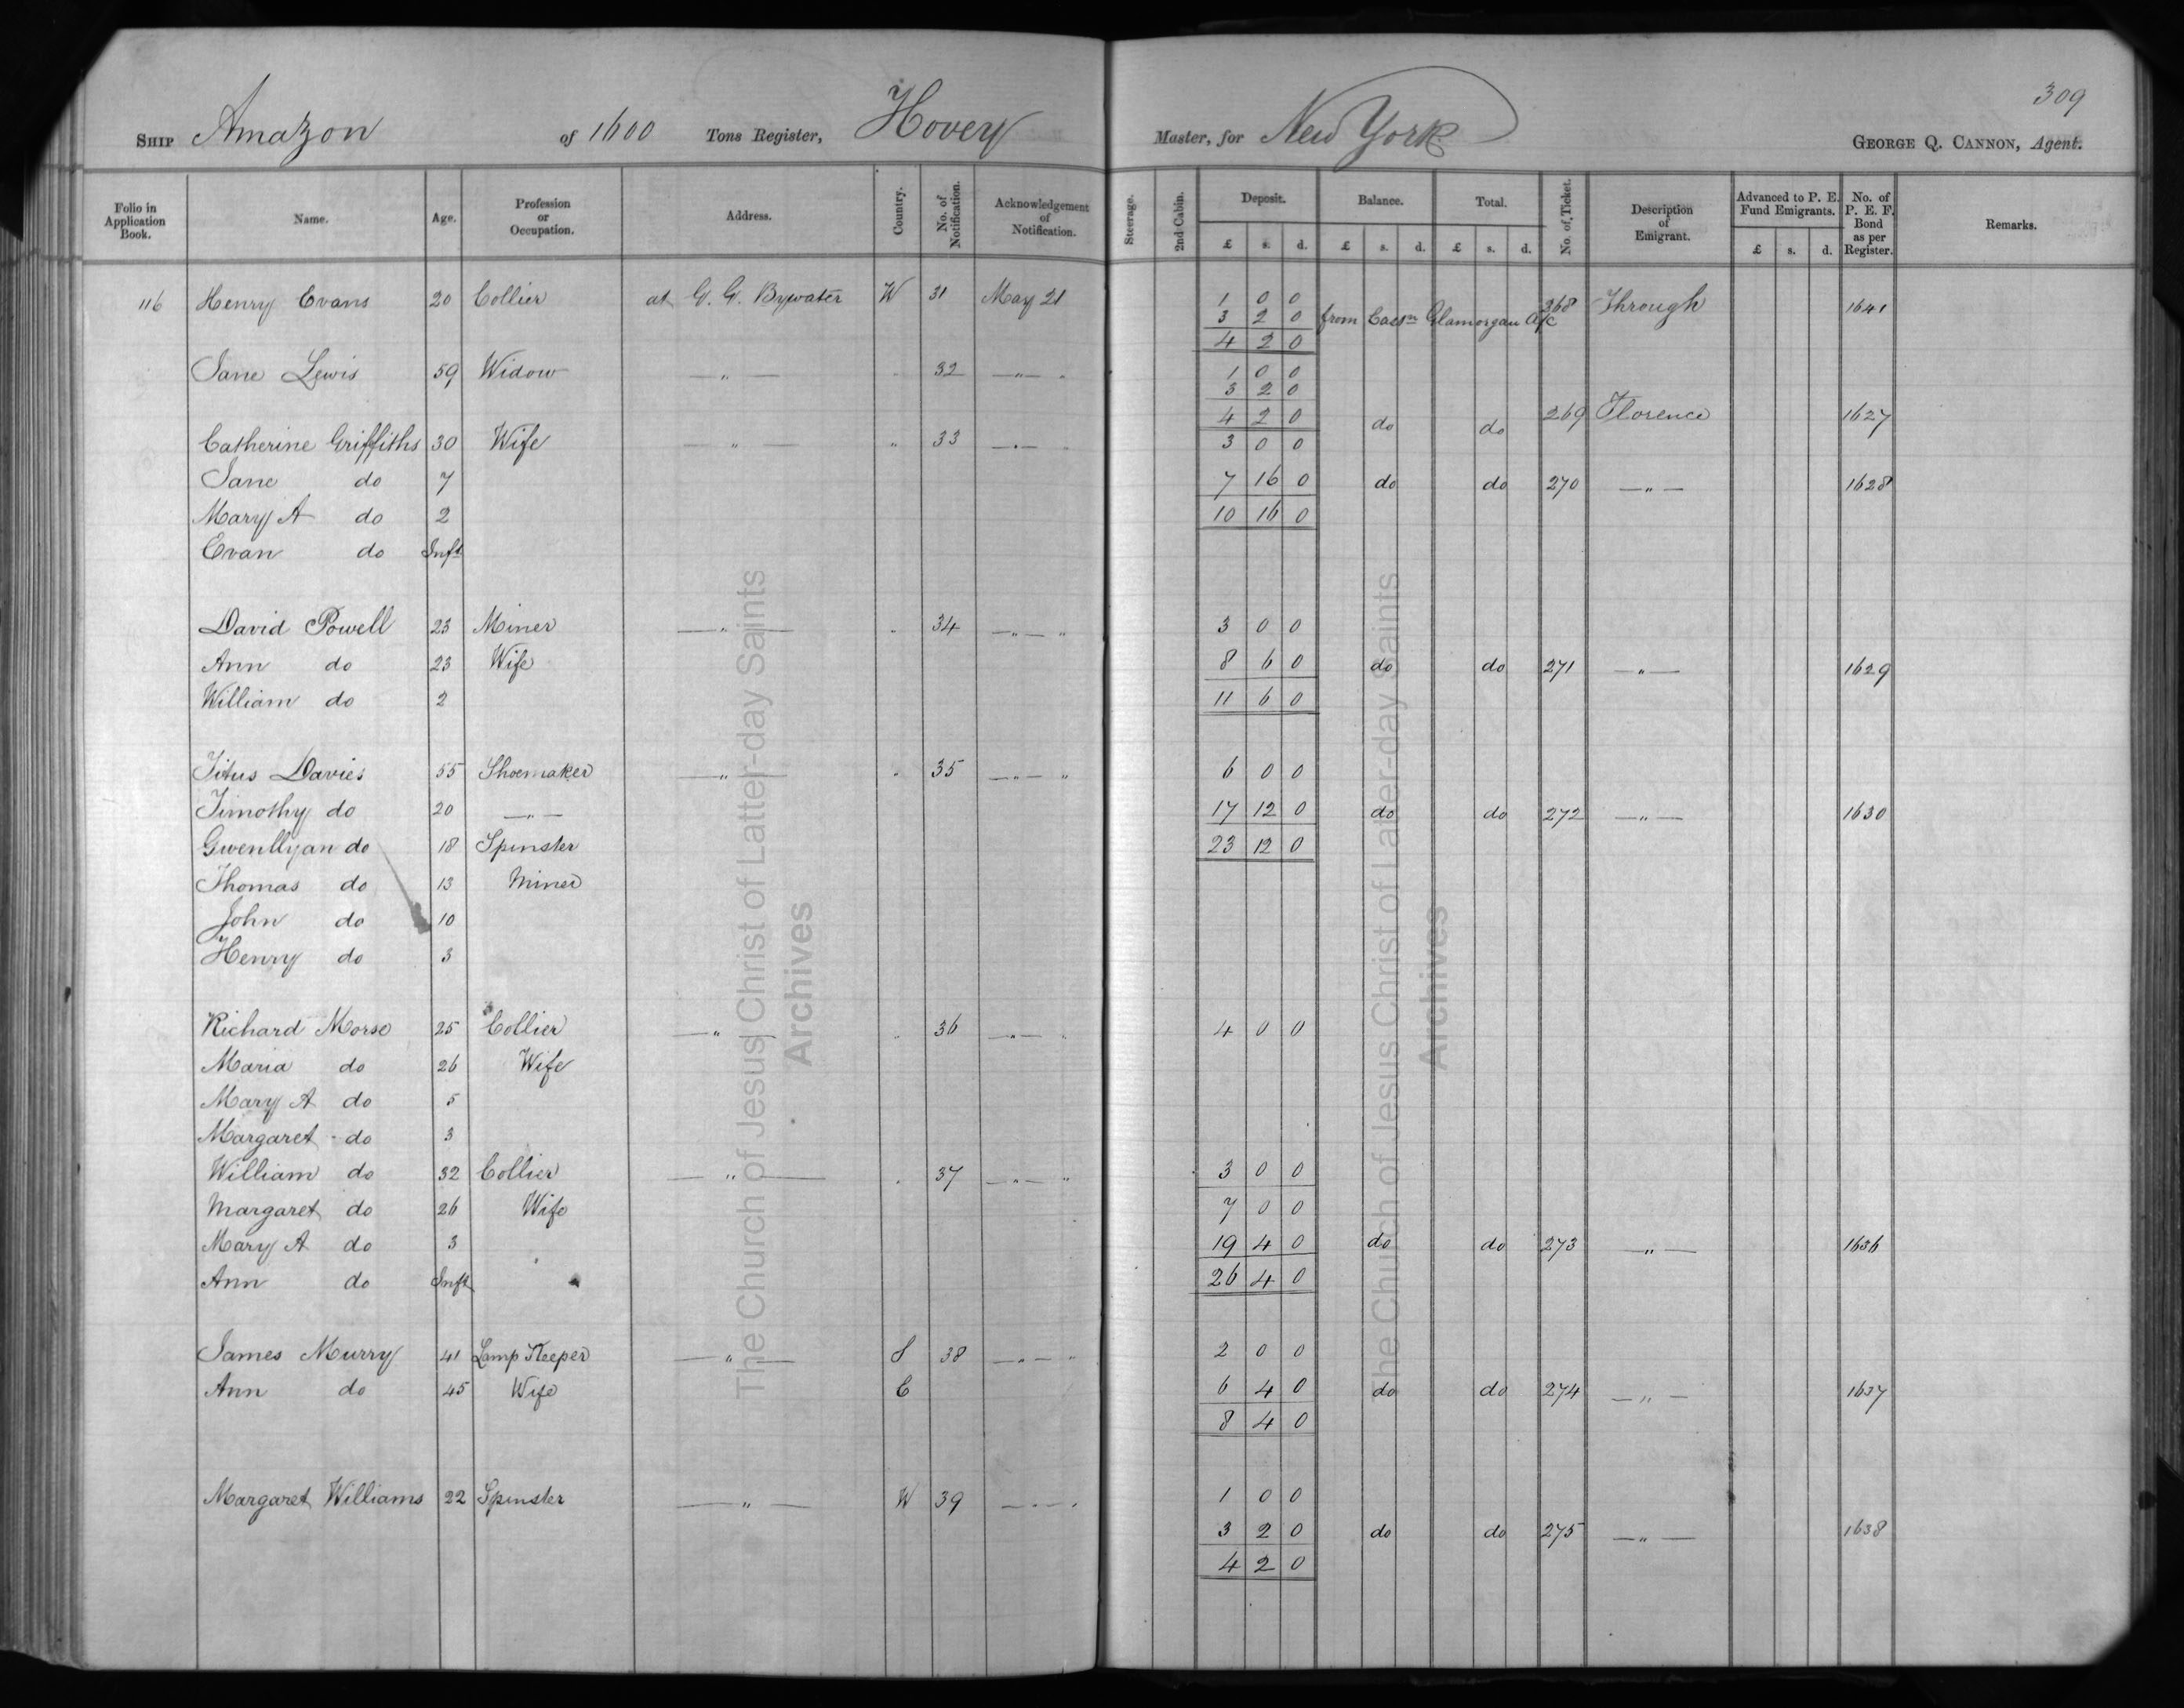 309
SHIP Amazon of 1600 Tons Register, Hovey Master, for New York GEORGE Q. CANNON, Agent.
Folio in Application Book. Name. Age. Profession or Occupation. Address. Country. No. of Notification. Acknowledgement of Notification. Steerage. 2nd Cabin. Deposit. Balance. Total. No. of Ticket. Description of Emigrant. Advanced to P. E. Fund Emigrants. No. of P. E. F. Bond as per Register. Remarks.
£ s. d. £ s. d. £ s. d. £ s. d.
116 Henry Evans 20 Collier at G. G. Bywater W 31 May 21 1 0 0 268 Through 1641
3 2 0 from Eastn Glamorgan A/c
4 2 0
Jane Lewis 59 Widow — " — . 32 — " — 1 0 0
3 2 0
4 2 0 do do 269 Florence 1627
Catherine Griffiths 30 Wife — " — " 33 — " — 3 0 0
Jane do 7 7 16 0 do do 270 — " — 1628
Mary A do 2 10 16 0
Evan do Inft
David Powell 23 Miner — " — . 34 — " — " 3 0 0
Ann do 23 Wife 8 6 0 do do 271 — " — 1629
William do 2 11 6 0
Titus Davies 55 Shoemaker — " — . 35 — " — " 6 0 0
Timothy do 20 — " — 17 12 0 do do 272 — " — 1630
Gwenllyan do 18 Spinster 23 12 0
Thomas do 13 Miner
John do 10
Henry do 3
Richard Morse 25 Collier — " — . 36 — " — " 4 0 0
Maria do 26 Wife
Mary A do 5
Margaret do 3
William do 32 Collier — " — . 37 — " — " 3 0 0
Margaret do 26 Wife 7 0 0
Mary A do 3 19 4 0 do do 273 — " — 1636
Ann do Inft 26 4 0
James Murry 41 Lamp Keeper — " — S 38 — " — " 2 0 0
Ann do 45 Wife E 6 4 0 do do 274 — " — 1637
8 4 0
Margaret Williams 22 Spinster — " — W 39 — " — 1 0 0
3 2 0 do do 275 — " — 1638
4 2 0
The Church of Jesus Christ of Latter-day Saints
Archives
The Church of Jesus Christ of Latter-day Saints
Archives